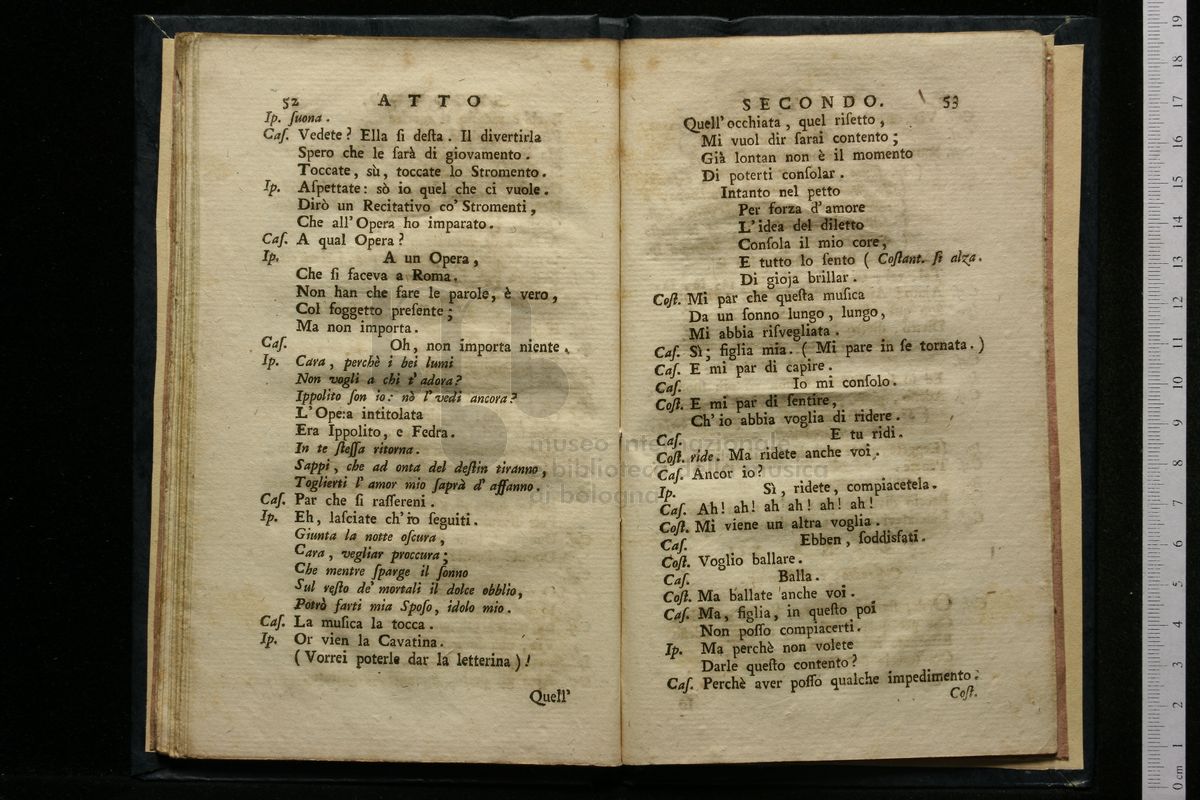 52 ATTO
Ip. ſuona.
Caſ. Vedete? Ella ſi deſta. Il divertirla
Spero che le ſarà di giovamento.
Toccate, sù, toccate lo Stromento.
Ip. Aſpettate: sò io quel che ci vuole.
Dirò un Recitativo co' Stromenti,
Che all' Opera ho imparato.
Caſ. A qual Opera?
Ip. A un Opera,
Che ſi faceva a Roma.
Non han che fare le parole, è vero,
Col ſoggetto preſente;
Ma non importa.
Caſ. Oh, non importa niente.
Ip. Cara, perchè i bei lumi
Non vogli a chi t' adora?
Ippolito ſon io: nò l' vedi ancora?
L'Opera intitolata
Era Ippolito, e Fedra.
In te ſteſſa ritorna.
Sappi, che ad onta del deſtin tiranno,
Toglierti l' amor mio ſaprà d' affanno.
Caſ. Par che ſi raſſereni.
Ip. Eh, laſciate ch' io ſeguiti.
Giunta la notte oſcura,
Cara, vegliar proccura;
Che mentre ſparge il ſonno
Sul reſto de' mortali il dolce obblio,
Potrò farti mia Spoſo, idolo mio.
Caſ. La muſica la tocca.
Ip. Or vien la Cavatina.
(Vorrei poterle dar la letterina)!
Quell'
SECONDO. 53
Quell' occhiata, quel riſetto,
Mi vuol dir ſarai contento;
Già lontan non è il momento
Di poterti conſolar.
Intanto nel petto
Per forza d' amore
L' idea del diletto
Conſola il mio core,
E tutto lo ſento ( Coſtant. ſi alza.
Di gioja brillar.
Coſt. Mi par che queſta muſica
Da un ſonno lungo, lungo,
Mi abbia riſvegliata.
Caſ. Sì; figlia mia. ( Mi pare in ſe tornata. )
Caſ. E mi par di capire.
Caſ. Io mi conſolo.
Coſt. E mi par di ſentire,
Ch' io abbia voglia di ridere.
Caſ. E tu ridi.
Coſt. ride. Ma ridete anche voi.
Caſ. Ancor io?
Ip. Sì, ridete, compiacetela.
Caſ. Ah! ah! ah ah! ah! ah!
Coſt. Mi viene un altra voglia.
Caſ. Ebben, ſoddisfati.
Coſt. Voglio ballare.
Caſ. Balla.
Coſt. Ma ballate anche voi.
Caſ. Ma, figlia, in queſto poi
Non poſſo compiacerti.
Ip. Ma perchè non volete
Darle queſto contento?
Caſ. Perchè aver poſſo qualche impedimento.
Coſt.
museo internazionale
biblioteca della musica
di bologna
0 cm 1 2 3 4 5 6 7 8 9 10 11 12 13 14 15 16 17 18 19